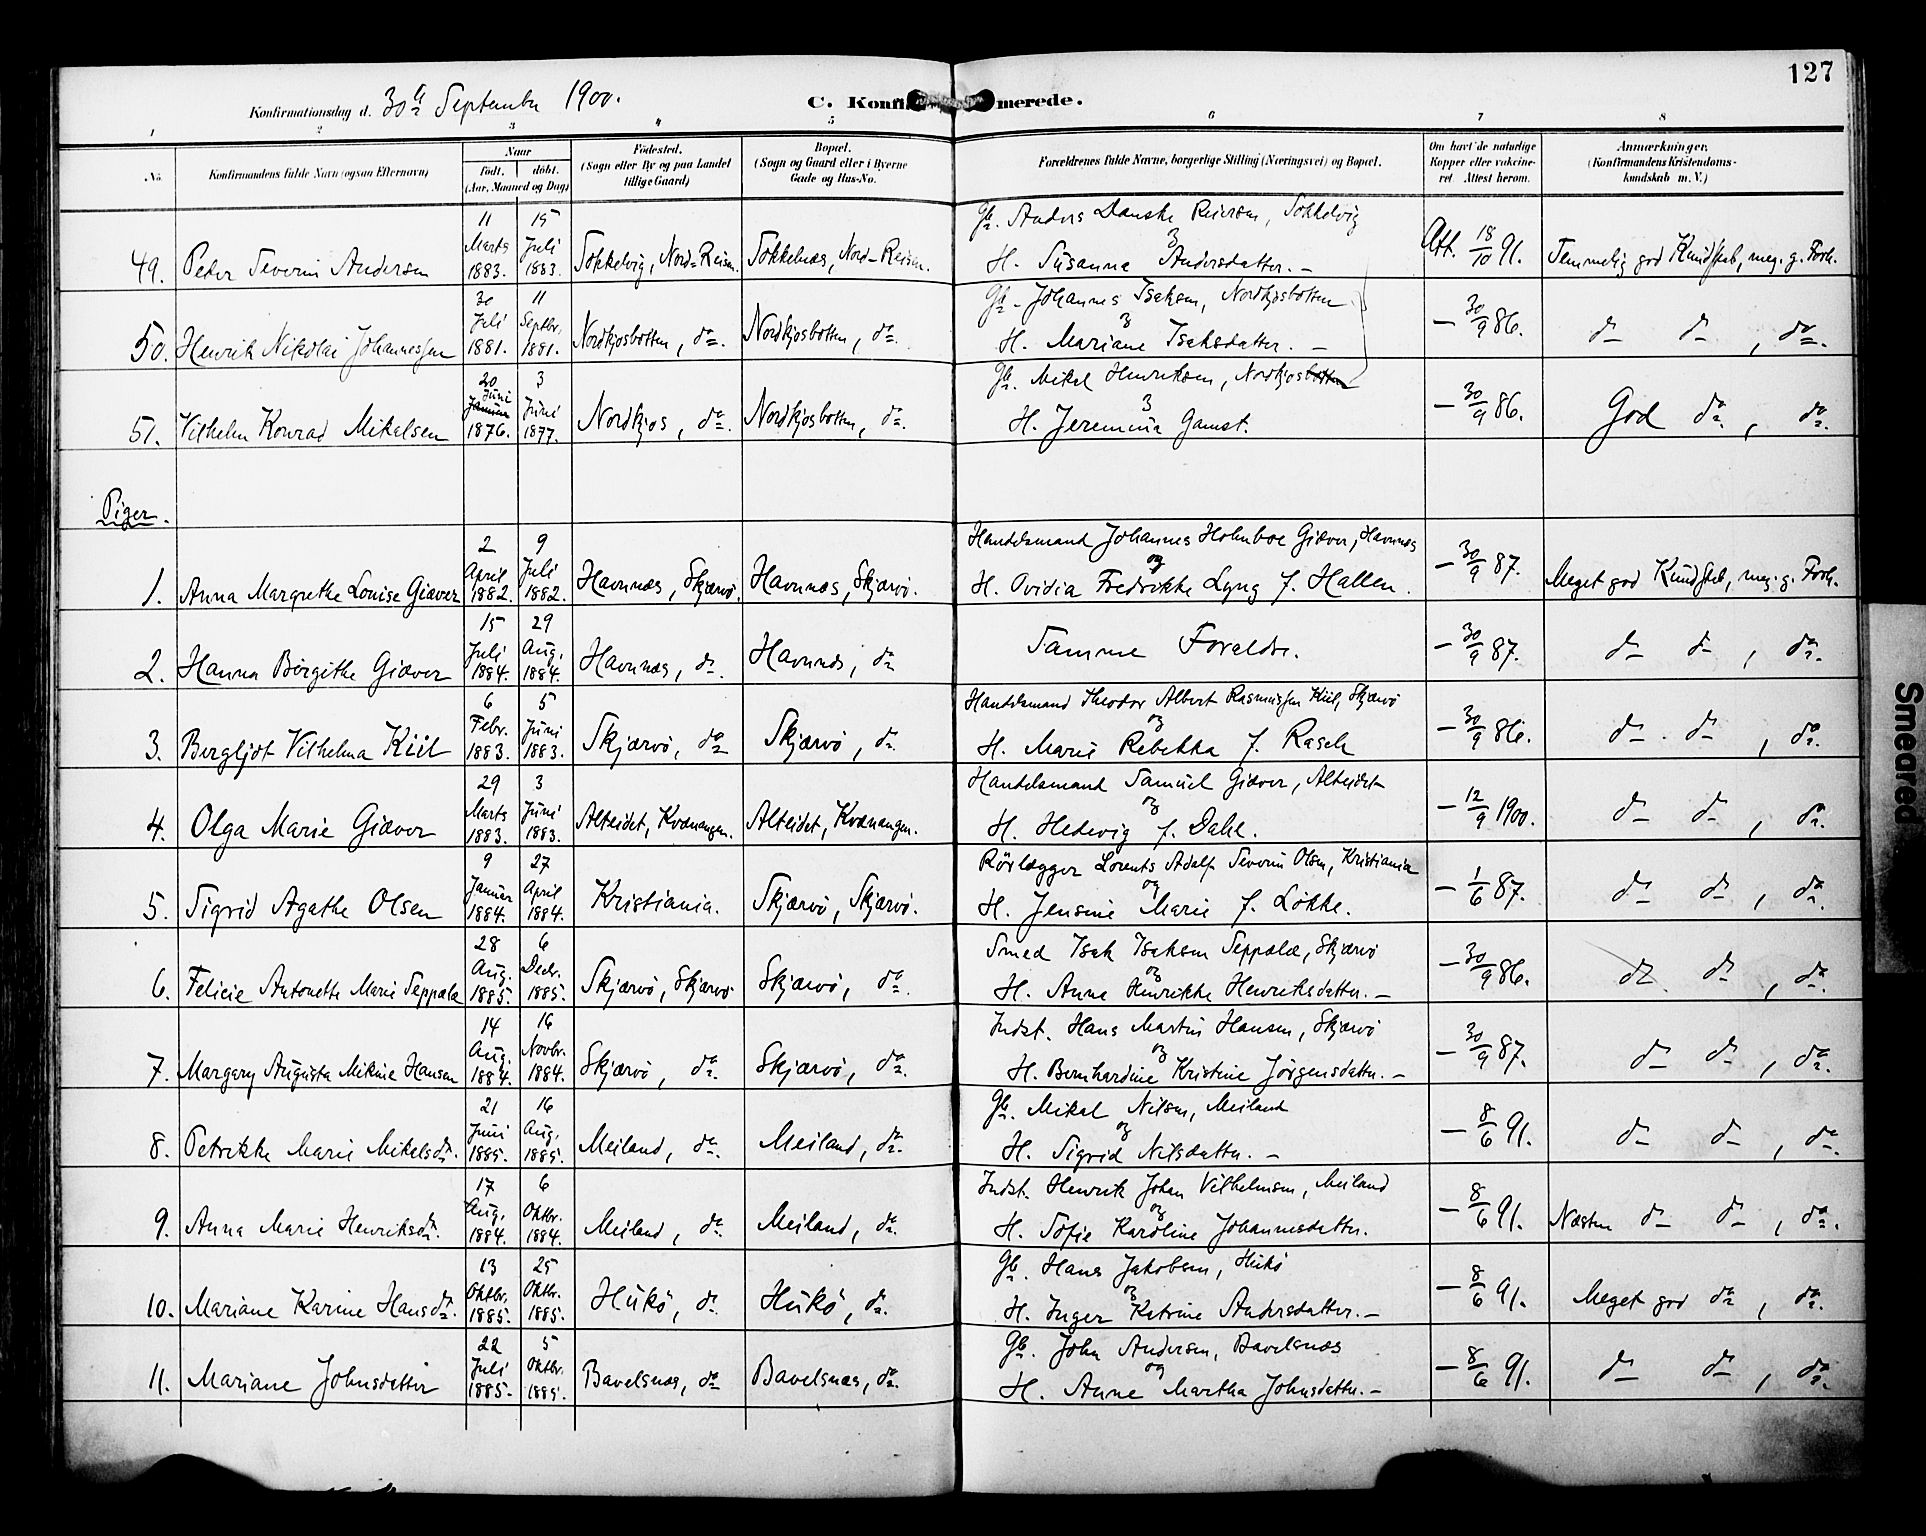 127
Konfirmationsdag d. 30te September 1900. C. Konfirmerede.
1 2 3 4 5 6 7 8
No. Konfirmandens fulde Navn (ogsaa Efternavn) Naar födt. döbt. (Aar, Maaned og Dag) Födested. (Sogn eller By og paa Landet tillige Gaard) Bopæl. (Sogn og Gaard eller i Byerne Gade og Hus-No. Forældrenes fulde Navne, borgerlige Stilling (Næringsvei) og Bopæl. Om havt de naturlige Kopper eller vakcineret. Attest herom. Anmærkninger. (Konfirmandens Kristendomskundskab m. V.)
49. Peder Severin Andersen 11 Marts 1883. 15 Juli 1883. Sokkelvig, Nord-Reisen. Sokkelnæs, Nord-Reisen. Gb. Anders Danske Reiersen, Sokkelvig & H. Susanna Andersdatter. - Att. 18/10 91. Temmelig god Kundskab, meg. g. Forh.
50. Henrik Nikolai Johannessen 30 Juli 1881. 11 Septbr. 1881. Nordkjosbotten, do. Nordkjosbotten, do. Gb. Johannes Isaksen, Nordkjosbotten & H. Mariane Isaksdatter. - - 30/9 86. do do, do.
51. Vilhelm Konrad Mikalsen 20 Juni Januar 1876. 3 Juni 1877. Nordkjos, do. Nordkjosbotten, do. Gb. Mikal Henriksen, Nordkjosbotten & H. Jeremina Gamst. - 30/9 86. God do, do.
Piger.
1. Anna Margrethe Louise Giæver 2 April 1882. 9 Juli 1882. Havnnæs, Skjærvö. Havnnæs, Skjærvö. Handelsmand Johannes Holmboe Giæver, Havnnæs og H. Ovidia Fredrikke Lyng f. Hallen. - 30/9 87. Meget god Kundskab, meg. g. Forh.
2. Hanna Birgithe Giæver 15 Juli 1884. 29 Aug. 1884. Havnnæs, do. Havnnæs, do. Samme Foreldre. - 30/9 87. do do, do.
3. Bergljot Vilhelma Kiil 6 Febr. 1883. 5 Juni 1883. Skjærvö, do. Skjærvö, do. Handelsmand Theodor Albert Rasmussen Kiil, Skjærvö og H. Marie Rebekka f. Rasch - 30/9 86. do do, do.
4. Olga Marie Giæver 29 Marts 1883. 3 Juni 1883. Alteidet, Kvænangen. Alteidet, Kvænangen. Handelsmand Samuel Giæver, Alteidet og H. Hedevig f. Dahl. - 12/9 1900. do do, do.
5. Sigrid Agathe Olsen 9 Januar 1884. 27 April 1884. Kristiania. Skjærvö, Skjærvö. Rörlægger Lorents Adolf Severin Olsen, Kristiania og H. Jensine Marie f. Lökke. - 1/6 87. do do, do.
6. Felicie Antonette Marie Seppälä 28 Aug. 1885. 6 Decbr. 1885. Skjærvö, Skjærvö. Skjærvö, do. Smed Isak Isaksen Seppälä, Skjærvö og H. Anna Henrikke Henriksdatter. - - 30/9 86. do do, do.
7. Margary Augusta Mikine Hansen 14 Aug. 1884. 16 Novbr. 1884. Skjærvö, do. Skjærvö, do. Indst. Hans Martin Hansen, Skjærvö og H. Bernhardine Kristine Jörgensdatter. - - 30/9 87. do do, do.
8. Petrikke Marie Mikelsdr. 21 Juni 1885. 16 Aug. 1885. Meiland, do. Meiland, do. Gb. Mikal Nilsen, Meiland og H. Sigrid Nilsdatter. - - 8/6 91. do do, do.
9. Anna Marie Henriksdr. 17 Aug. 1884. 6 Oktbr. 1884. Meiland, do. Meiland, do. Indst. Henrik Johan Vilhelmsen, Meiland og H. Sofie Karoline Johannesdatter. - 8/6 91. Næsten do do, do.
10. Mariane Karine Hansdr. 13 Oktbr. 1885. 25 Oktbr. 1885. Hukö, do. Hukö, do. Gb. Hans Jakobsen, Hukö og H. Inger Katrine Andersdatter. - - 8/6 91. Meget god do, do.
11. Mariane Johnsdatter 22 Juli 1885. 5 Oktbr. 1885. Bavelsnæs, do. Bavelsnæs, do. Gb. John Andersen, Bavelsnæs og H. Anne Martha Johnsdatter. - - 8/6 91. do do, do.
Smeared